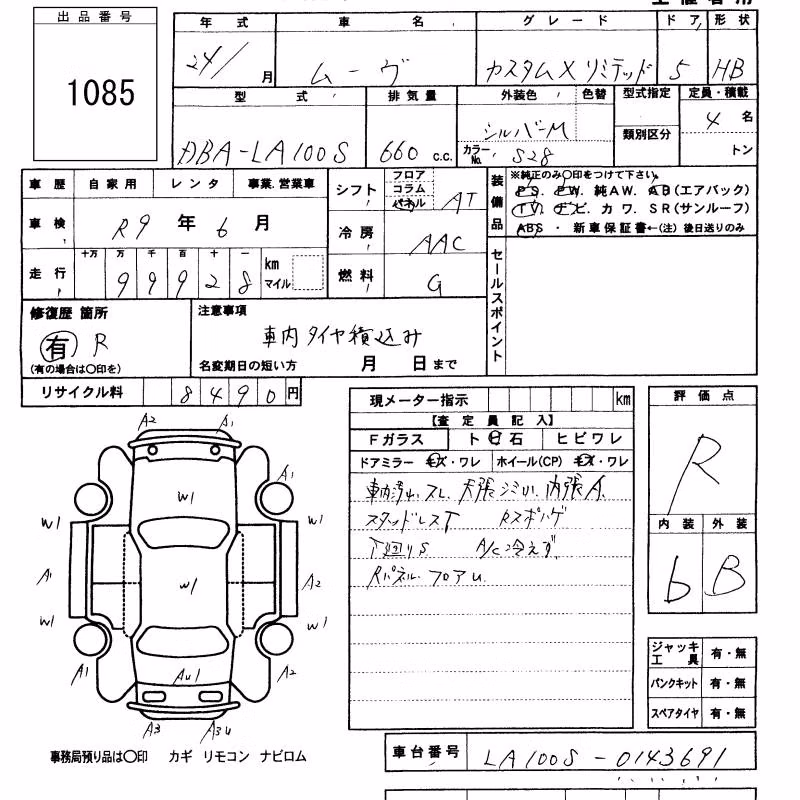 出品番号
1085
年式 車名 グレード ドア 形状
24/ 月 ムーヴ カスタムX リミテッド 5 HB
型式 排気量 外装色 色替 型式指定 定員・積載
類別区分
DBA-LA100S 660 c.c. シルバーM 4 名
カラーNo. S28 トン
車歴 自家用 レンタ 事業.営業車
車検 R9 年 6 月
走行 十万 万 千 百 十 一
99928 km マイル
シフト フロア コラム パネル AT
冷房 AAC
燃料 G
装備品
※純正のみ○印をつけて下さい。
PS. PW. 純AW. AB(エアバック)
TV. ナビ. カワ. SR(サンルーフ)
ABS ・ 新車保証書←(注) 後日送りのみ
セールスポイント
修復歴 箇所
有 R
(有の場合は○印を)
注意事項
車内タイヤ積込み
名変期日の短い方 月 日まで
リサイクル料 8490 円
現メーター指示 km
【査定員記入】
Fガラス ト ビ 石 ヒビワレ
ドアミラー キズ・ワレ ホイール(CP) キズ・ワレ
車内汚れ スレ 天張シミ 内張A
スタッドレスT Rスポイラ
下廻りS A/C冷えず
Rパネル フロアU
評価点
R
内装 外装
b B
ジャッキ工具 有・無
パンクキット 有・無
スペアタイヤ 有・無
A2 A1
W1 A1
W1 W1
A1 W1 A2
W1 W1
A1 AU1 A2
A3 A3U
事務局預り品は○印 カギ リモコン ナビロム
車台番号 LA100S-0143691